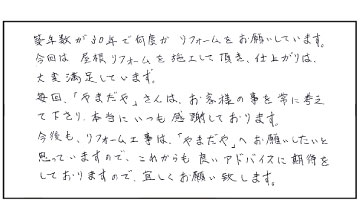 築年数が30年で何度かリフォームをお願いしています。
今回は屋根リフォームを施工して頂き、仕上がりは、
大変満足しています。
毎回、「やまだや」さんは、お客様の事を常に考え
て下さり、本当にいつも感謝しております。
今後も、リフォーム工事は、「やまだや」へお願いしたいと
思っていますので、これからも良いアドバイスに期待を
しておりますので、宜しくお願い致します。